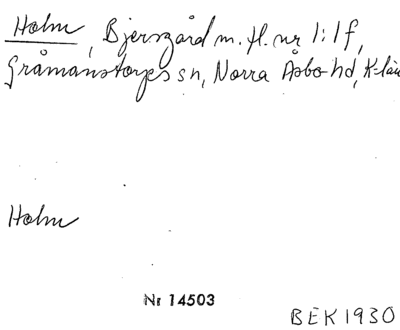 Holm, Bjersgård m. fl. nr 1:1f,
Gråmanstorps sn, Norra Åsbo hd, K-län
Holm
Nr 14503
BEK 1930